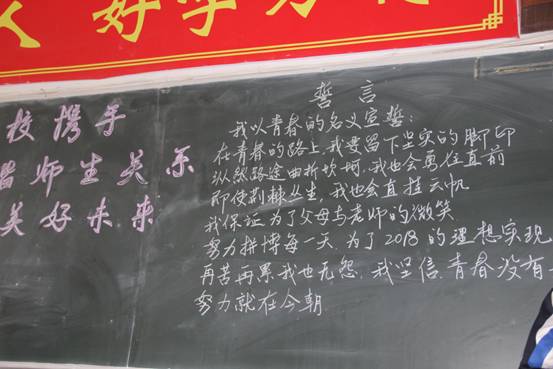 好学
校携手
师生关系
美好未来
誓言
我以青春的名义宣誓:
在青春的路上,我要留下坚实的脚印
纵然路途曲折坎坷,我也会勇往直前
即使荆棘丛生,我也会直挂云帆
我保证为了父母与老师的微笑
努力拼搏每一天,为了2018的理想实现
再苦再累我也无怨,我坚信,青春没有
努力就在今朝